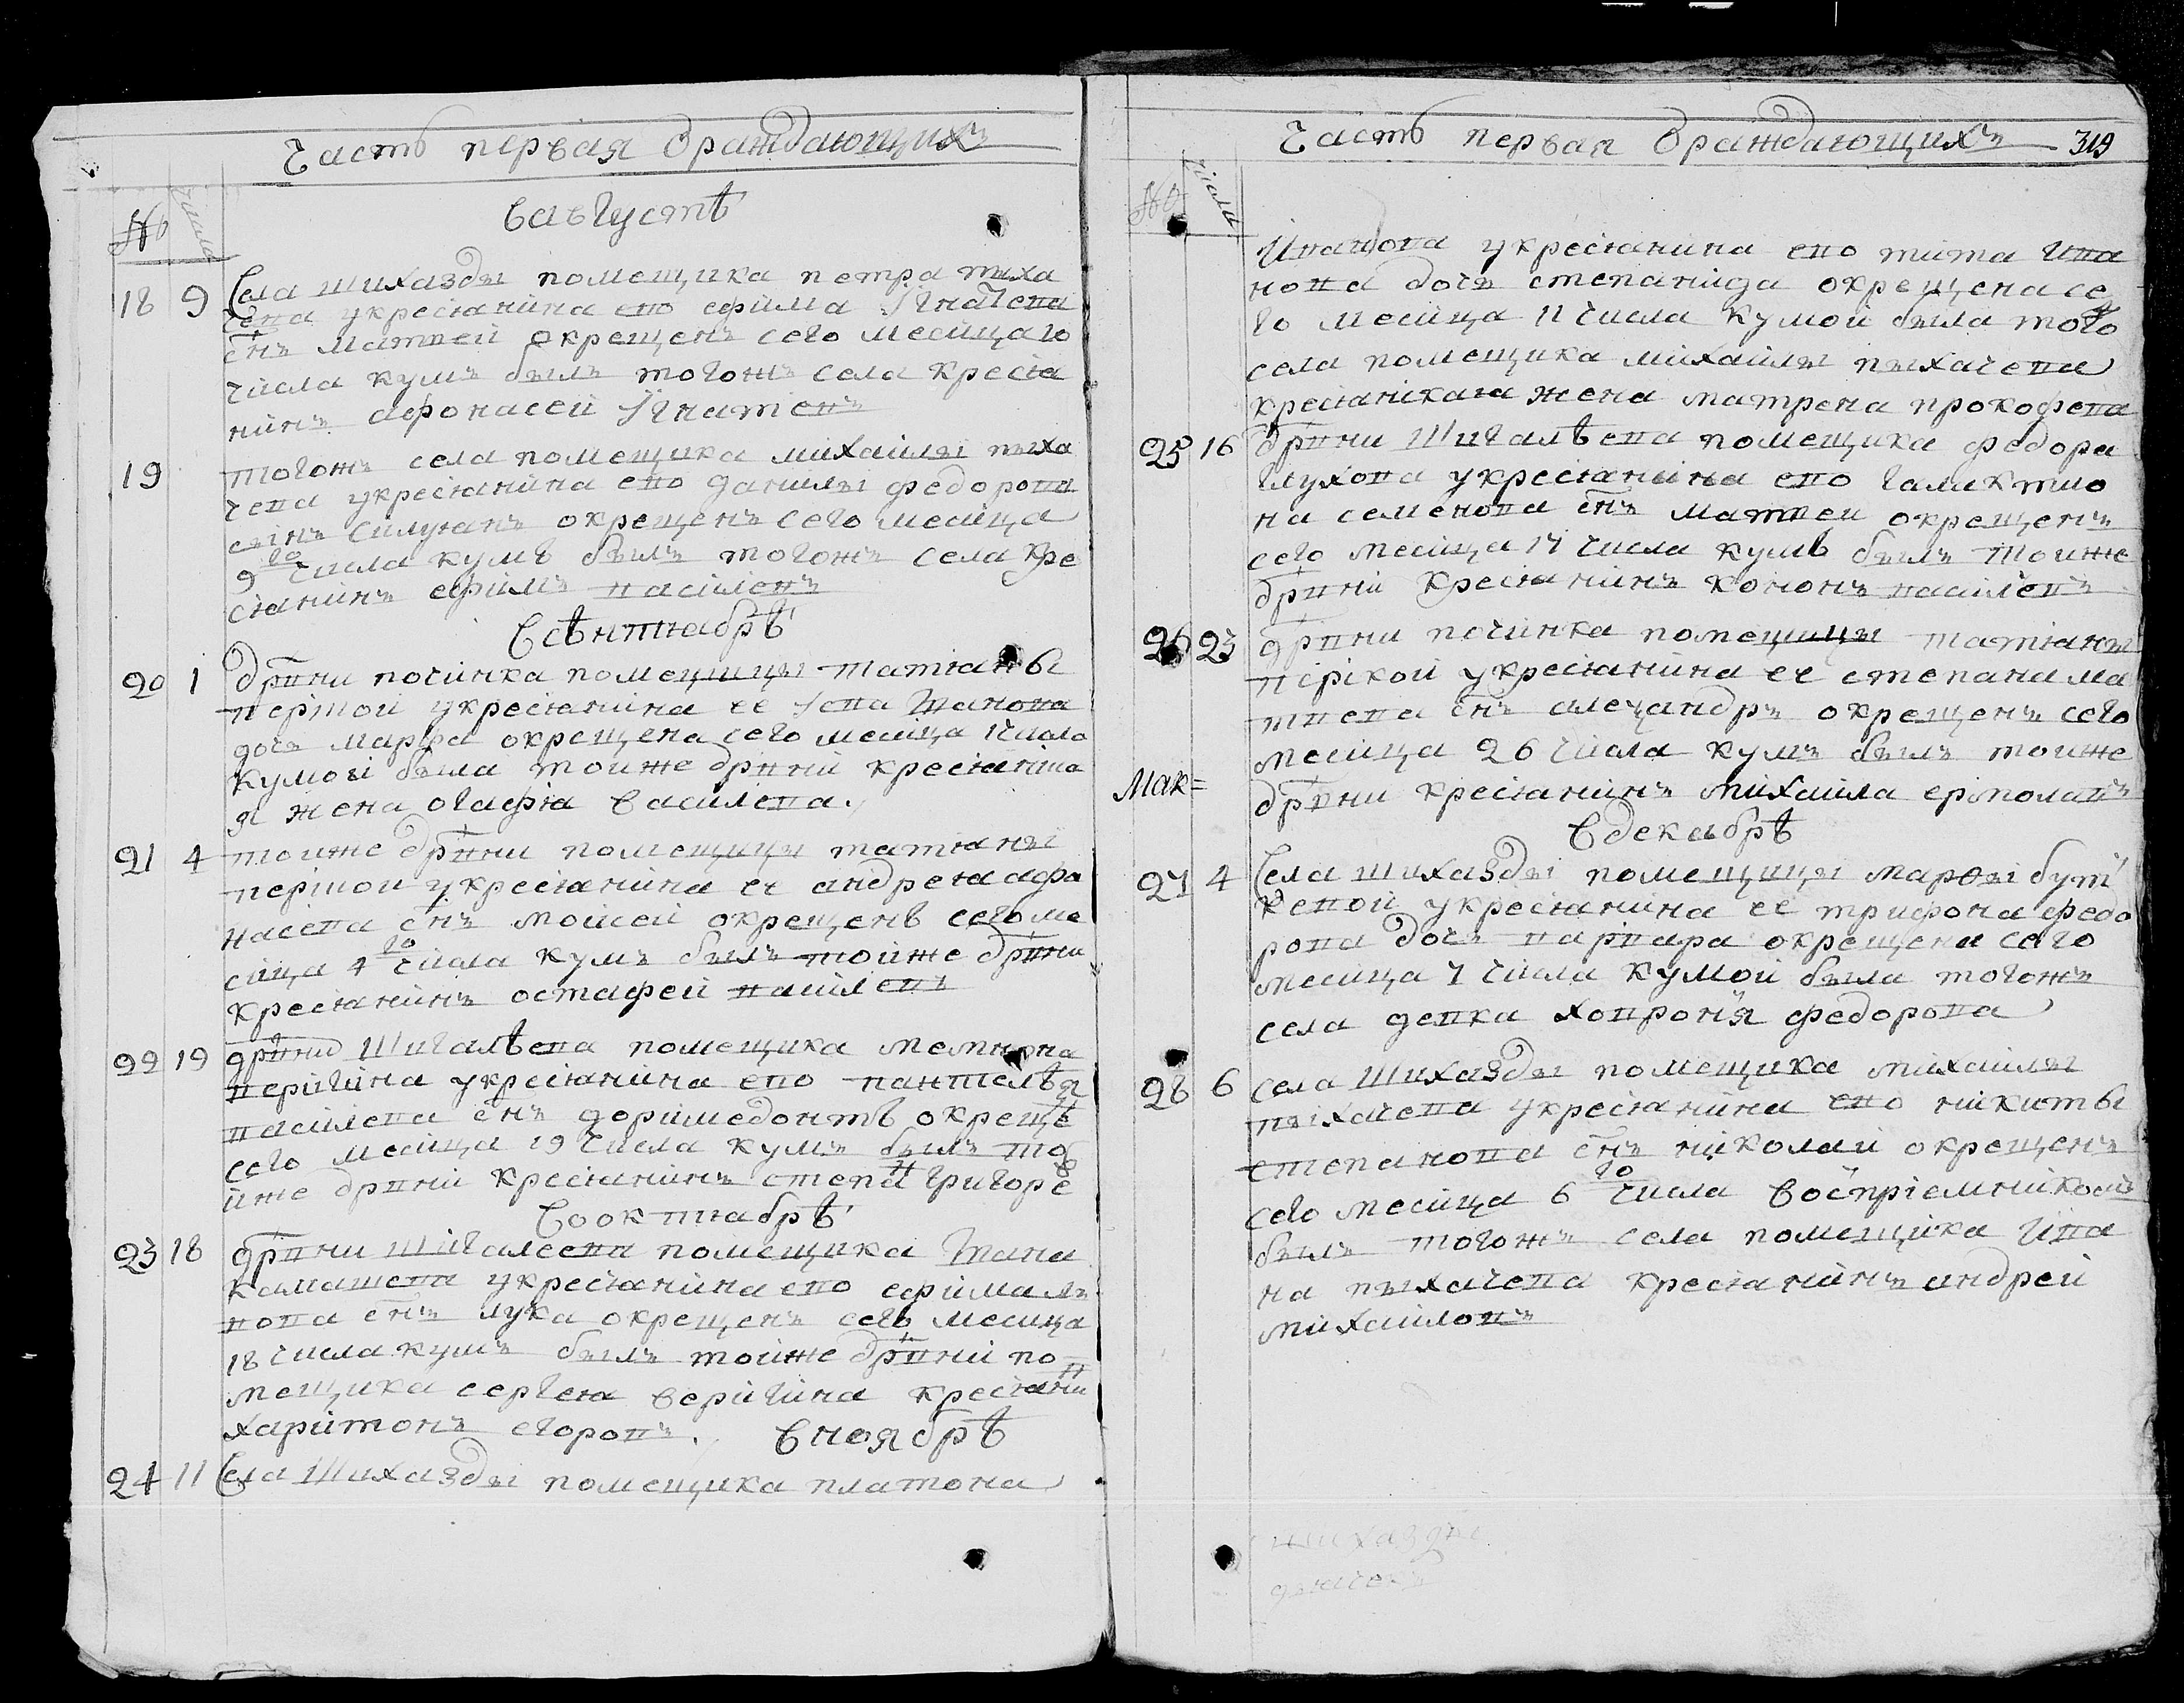 Часть первая ѡраждающихъ
№ числа
Вавгустѣ
18 9 Села шихазды помещика петра пыха
чева укрестянина ево ефима Iгнатева
снъ матвей окрещенъ сего месяца 10
числа кумъ былъ тогожъ села крестя
нинъ афонасей Iгнатевъ
19 тогожъ села помещика михаилы пыха
чева укрестянина ево данилы федорова
сынъ силуянъ окрещенъ сего месяца
9го числа кумъ былъ тогожъ села кре
стянинъ ефимъ василевъ
Всѣнтябрѣ
20 1 дрвни починка помещицы татіаны
укрестянина ее
дочь марфа окрещена сего месяца 1 числа
кумой была тоиже дрвни крестянска
я жена огафія василева.
21 4 тоиже дрвни помещицы татіаны
укрестянина ее андрея афо
насева снъ мойсей окрещенъ сего ме
сяца 4го числа кумъ былъ тойже дрвни
крестянинъ остафей василевъ
22 19 дрвни Шигалѣева помещика
веригина укрестянина ево пантелѣя
василева снъ доримедонтъ окреще
сего месяца 19 числа кумъ былъ то
йже дрвни крестянинъ степанъ григоре
Вооктябрѣ
23 18 дрвни шигалеева помещика Iвана
укрестянина ево ефима ль
вова снъ лука окрещенъ сего месяца
18 числа кумъ былъ тоиже дрвни по
мещика сергея веригина крестянин
харитонъ егоровъ. Вноябрѣ
24 11 Села Шихазды помещика платона
Часть первая ѡраждающихъ 319
№ числа
Иванова укрестянина ево тита Ива
нова дочь степанида окрещена се
го месяца 11 числа кумой была того
села помещика михаилы пыхачева
крестянская жена матрена прокофева
25 16 дрвни Шигалѣева помещика федора
глухова укрестянина ево галактио
на семенова снъ матвей окрещенъ
сего месяца 17 числа кумъ былъ тоиже
дрвни крестянинъ кононъ василевъ
26 23 дрвни починка помещицы татіаны
укрестянина ее степана ма
твева снъ алеѯандръ окрещенъ сего
месяца 26 числа кумъ былъ тоиже
Мак=
дрвни крестянинъ михаила ермолаевъ
Вдекабрѣ
27 4 Села шихазды помещицы марѳы бут
кевой укрестянина ее трифона федо
рова дочь варвара окрещена сего
месяца 7 числа кумой была тогожъ
села девка ховронія федорова
28 6 села Шихазды помещика михаилы
пыхачева укрестянина ево никиты
степанова снъ николай окрещенъ
сего месяца 6го числа воспріемникомъ
былъ тогожъ села помещика Ива
на пыхачева крестянинъ андрей
михаиловъ
шихазды